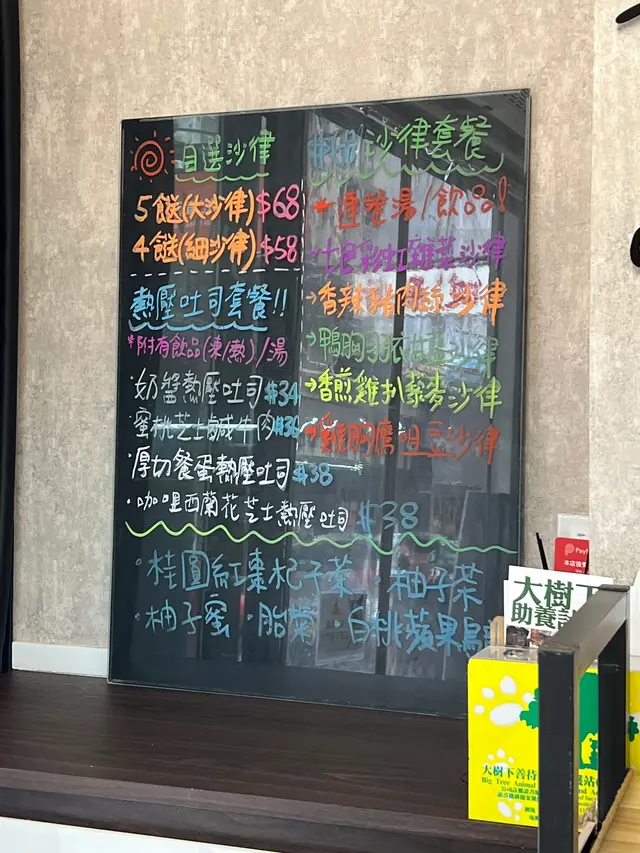 自選沙律
5餸(大沙律)$68
4餸(細沙律)$58
熱壓吐司套餐!!
*附有飲品(凍/熱)/湯
·奶醬熱壓吐司$34
·蜜桃芝士鹹牛肉$36
·厚切餐蛋熱壓吐司$38
·咖哩西蘭花芝士熱壓吐司$38
沙律套餐
*連餐湯/飲品!
七色彩虹雜菜沙律
→香辣豬肉絲沙律
→鴨胸羽衣甘藍沙律
→香煎雞扒藜麥沙律
→雞胸鷹咀豆沙律
·桂圓紅棗杞子茶 ·柚子茶
·柚子蜜 ·白桃蘋果烏
PayM
大樹下
助養
大樹下善待
Big Tree Animal